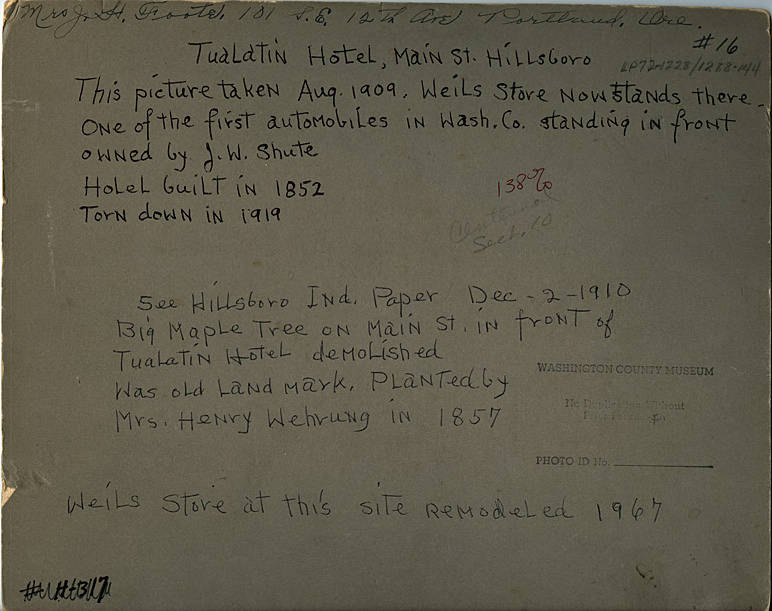 Mrs J. H. Foote, 101 S.E. 12th Ave Portland, Ore.
#16
Tualatin Hotel, Main St. Hillsboro
This picture taken Aug. 1909. Weils Store now stands there.
One of the first automobiles in Wash. Co. standing in front
owned by J.W. Shute
Hotel built in 1852
138%
Torn down in 1919
Sect. 10
See Hillsboro Ind. Paper Dec - 2 - 1910
Big Maple Tree on Main St. in front of
Tualatin Hotel demolished
Was old Land mark. Planted by
Mrs. Henry Wehrung in 1857
WASHINGTON COUNTY MUSEUM
No Duplication Without
PHOTO ID No.
Weils Store at this site remodeled 1967